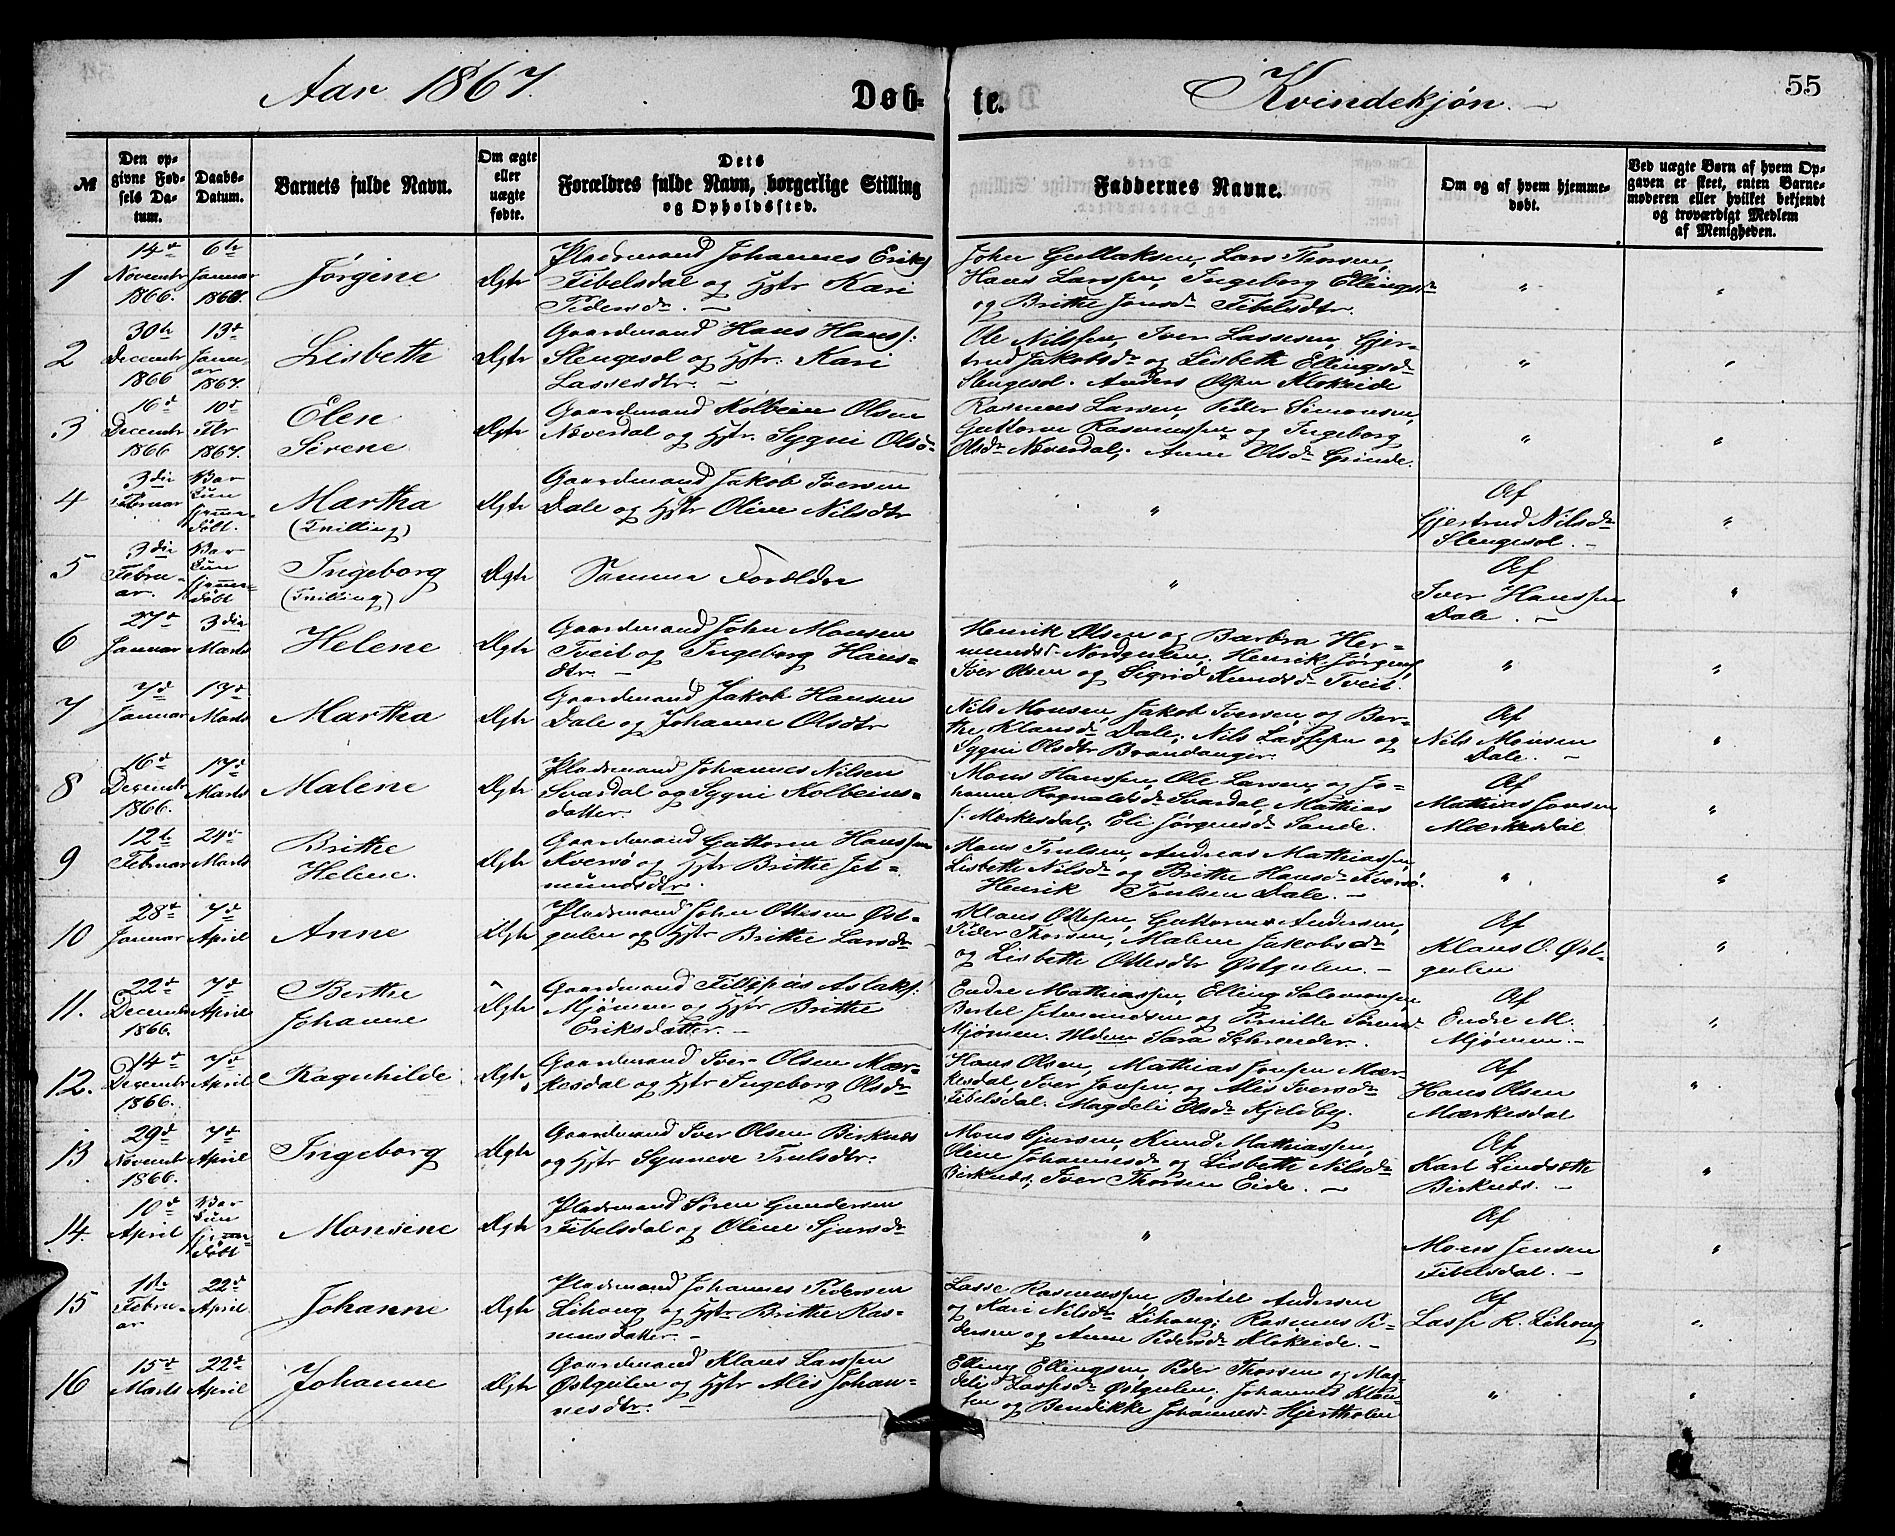 Aar 1867.
Døb-
te.
Kvindekjøn. -
55
№
Den op-
givne Fød-
sels Da-
tum.
Daabs-
Datum.
Barnets fulde Navn.
Om ægte
eller
uægte
fødte.
Dets
Forældres fulde Navn, borgerlige Stilling
og Opholdssted.
Faddernes Navne.
Om og af hvem hjemme-
døbt.
Ved uægte Børn af hvem Op-
gaven er skeet, enten Barne-
moderen eller hvilket bekjendt
og troværdigt Medlem
af Menigheden.
1
14de
Novembr
1866.
6te
Januar
1867.
Jørgine
Ægte
Pladsmand Johannes Eriks
Tibelsdal og Hstr Kari
Pedersdr. -
John Guttaksen, Lars Thorsen,
Hans Larssen, Ingeborg Ellingsdr
og Brithe Jonsdr Tibelsdtr.
"
"
2
30te
Decembr
1866
13de
Janu-
ar
1867.
Lisbette
Ægte
Gaardmand Hans Hanss:
Slengesol og Hstr. Kari
Lassesdtr. -
Ole Nilssen, Iver Lassesen, Gjer-
trud Jakobsdr og Lisbeth Ellingsdr
Slengesol. Anders Olsen Klokeide
"
"
3
16de
Decembr
1866
10de
Fbr
1867.
Elen
Sirene
Ægte
Gaardmand Kolbein Olsen
Næverdal og Hstr. Sygni Olsd-
Rasmus Larsen, Peder Simonsen,
Guttorm Rasmussen og Ingeborg
Olsdr Næverdal; Anne Olsdr Grinde.
"
"
4
3die
Februar
Bar
Kun
hjemme-
døbt.
Martha
(Tvilling)
Ægte
Gaardmand Jakob Iversen
Dale og Hstr Oline Nilsdtr
"
Af
Gjertrud Nilsdr
Slengesol. -
"
5
3die
Febru-
ar.
Bar
Kun
hjemme-
døbt
Ingeborg
(Tvilling)
Ægte
Samme Forældre
"
Af
Iver Hanssen
Dale. -
"
6
27de
Januar
3die
Marts
Helene
Ægte
Gaardmand John Monsen
Tveit og Ingeborg Hans-
dtr. -
Henrik Olsen og Barbra Her-
mundsd. Nordgulen, Henrik Jørgens
Iver Olsen og Sigrid Knudsdr Tveit.
"
"
7
7de
Januar
17de
Marts
Martha
Ægte
Gaardmand Jakob Hansen
Dale og Johanne Olsdtr
Nils Monsen, Jakob Iversen og Ber-
the Klausdr Dale; Nils Lassesen og
Sygni Olsdtr Brandanger.
Af
Nils Monsen
Dale. -
"
8
16de
Decembr
1866
17de
Marts
Malene
Ægte
Pladsmand Johannes Nilsen
Svardal og Sygni Kolbeins-
datter.
Mons Hanssen, Ole Larsen, og Jo-
hanne Rognaldsdr Svardal, Mathias
J. Mærkesdal; Eli Jørgensdr Sande.
Af
Mathias Jonsen
Mærkesdal
"
9
12te
Februar
24de
Marts
Brithe
Helene.
Ægte
Gaardmand Guttorm Hanssen
Kversø og Hstr Brithe Jet-
mundsdtr.
Mons Trulsen, Andreas Mathiassen,
Lisbette Nilsdr og Brithe Hansdr Kversø.
Henrik Trulsen Dale. -
"
"
10
28de
Januar
7de
April
Anne
Ægte
Pladsmand John Ottesen Øst-
gulen og Hstr Brithe Larsdr
Klaus Ottesen, Guttorm Andersen,
Peder Thorsen, Malene Jakobsdr
og Lisbette Ottesdtr Østgulen. -
Af
Klaus O. Øst-
gulen
"
11.
22de
Decembr
1866.
7de
April
Berthe
Johanne
Ægte
Gaardmand Fillipus Aslaks:
Mjømen og Hstr Brithe
Eriksdatter. -
Endre Mathiassen, Elling Salomonsen
Bertel Jetmundsen og Pernille Sørensd.
Mjømen. Mdme Sara Schrøuder.
Af
Endre M.
Mjømen. -
"
12.
14de
Decembr
1866.
7de
April
Ragnhilde
Ægte
Gaardmand Iver Olsen Mær-
kesdal og Hstr Ingeborg Olsdr
Hans Olsen, Mathias Jonsen Mær-
kesdal, Iver Jonsen og Alis Iversdr
Tibelsdal. Magdeli Olsdr Kjelsby.
Af
Hans Olsen
Mærkesdal
"
13
29de
Novembr
1866.
7de
April
Ingeborg
Ægte
Gaardmand Iver Olsen Birknes
og Hstr Synneve Trulsdtr.
Mons Sjursen, Knud Mathiassen,
Oline Johannesdr og Lisbette Nilsdr
Birknes, Iver Thorsen Eide. -
Af
Karl Lindsætte
Birknes. -
"
14.
10de
April
Bar
Kun
hjemme-
døbt
Monsine
Ægte
Pladsmand Søren Gundersen
Tibelsdal og Oline Sjursdr
"
Af
Mons Jensen
Tibelsdal. -
"
15
1ste
Febru-
ar
22de
April
Johanne
Ægte
Pladsmand Johannes Pedersen
Lihoug og Hstr Brithe Ras-
musdatter. -
Lasse Rasmussen, Bertel Andersen
og Kari Nilsdr Lihoug; Rasmus Pe-
dersen og Anne Pedersdr Klokeide. -
Af
Lasse R. Lihoug
"
16
15de
Marts
22de
April
Johanne
Ægte
Gaardmand Klaus Larssen
Østgulen og Hstr Alis Johan-
nesdtr. -
Elling Ellingsen, Peder Thorsen og Mag-
deli Lassesdr Østgulen; Johannes Klau-
sen og Bendikke Johannesd. Hjertholm
"
"